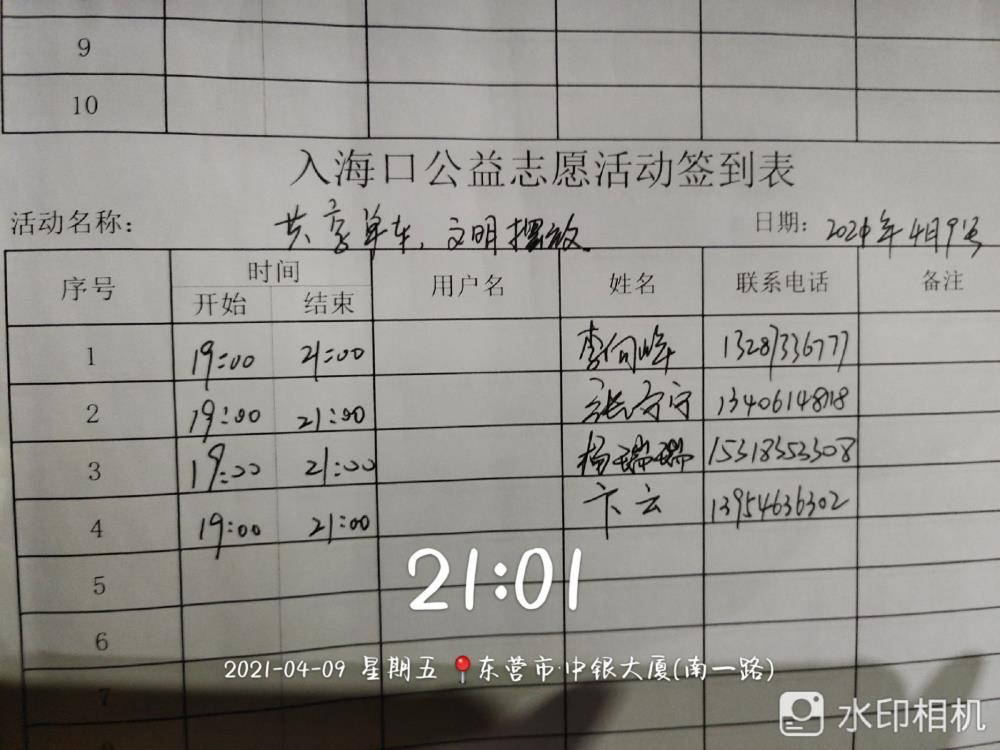 9
10
入海口公益志愿活动签到表
活动名称: 共享单车，文明摆放 日期: 2021年4月9号
序号 时间 用户名 姓名 联系电话 备注
开始 结束
1 19:00 21:00 李向峰 13287336777
2 19:00 21:00 张宁宁 13406148818
3 19:00 21:00 杨瑞瑞 15318353308
4 19:00 21:00 卞云 13954636302
5
21:01
6
2021-04-09 星期五 东营市·中银大厦(南一路)
7
水印相机